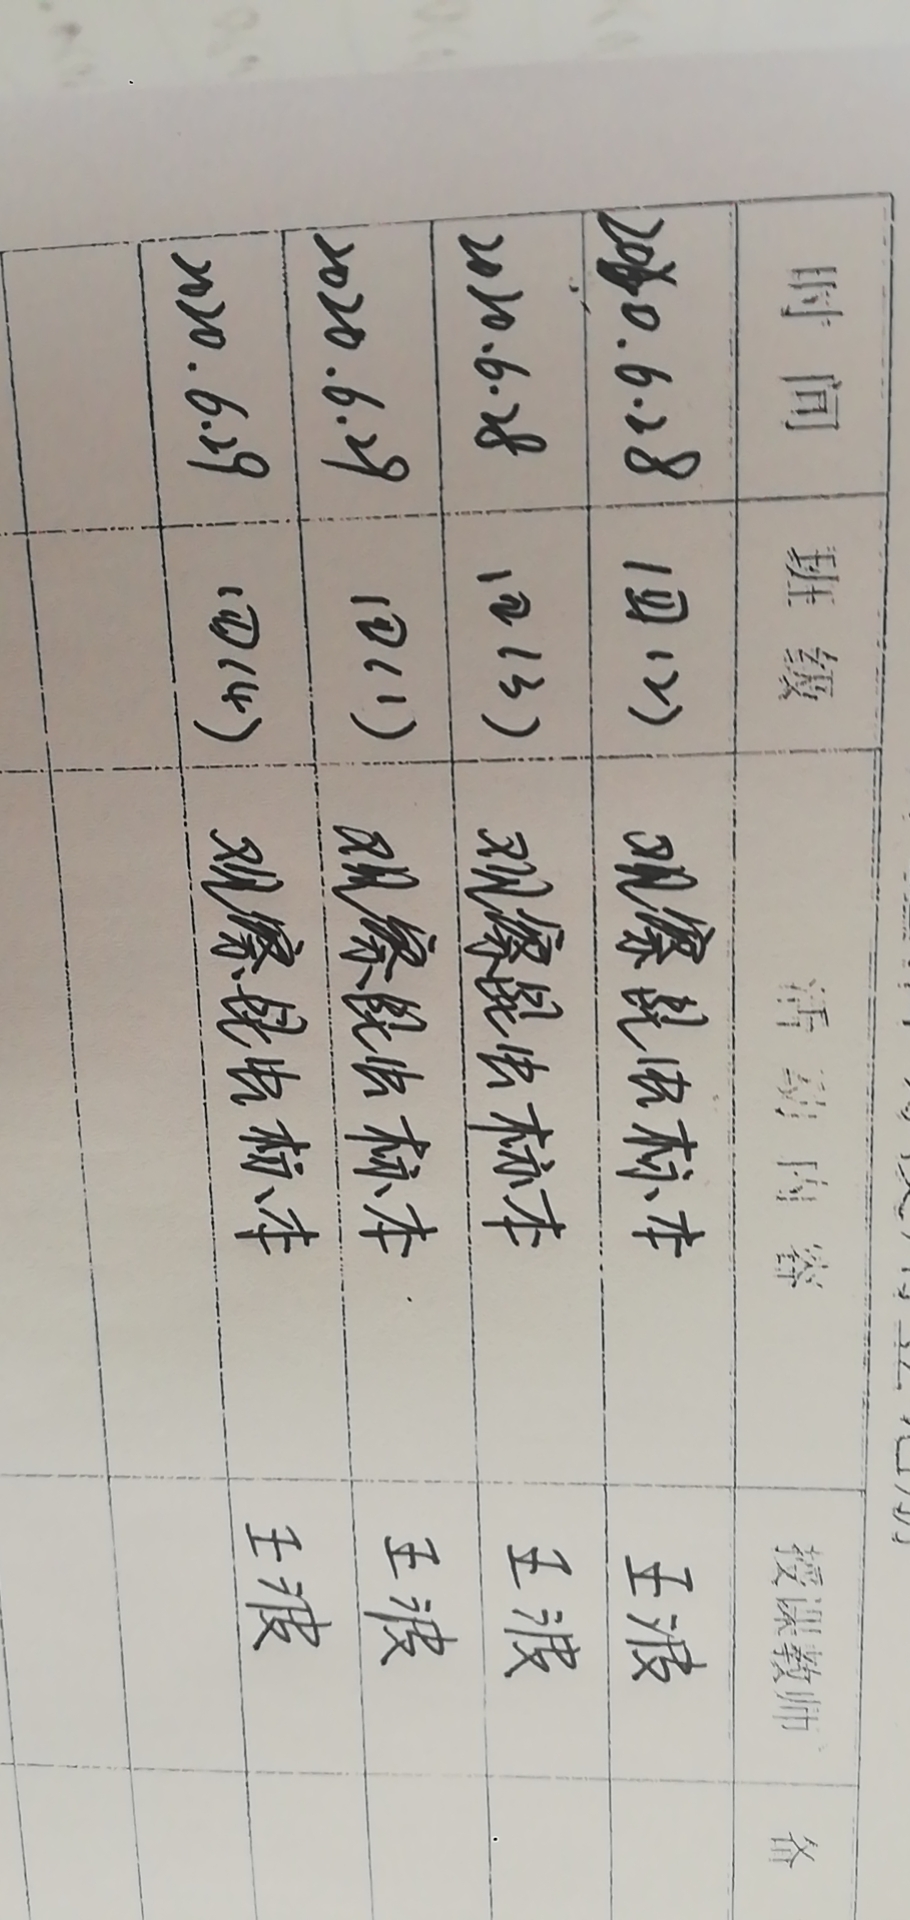 时间 班级 活动内容 授课教师 备
2020.6.28 四(2) 观察昆虫标本 王波
2020.6.28 四(3) 观察昆虫标本 王波
2020.6.29 四(1) 观察昆虫标本 王波
2020.6.29 四(4) 观察昆虫标本 王波